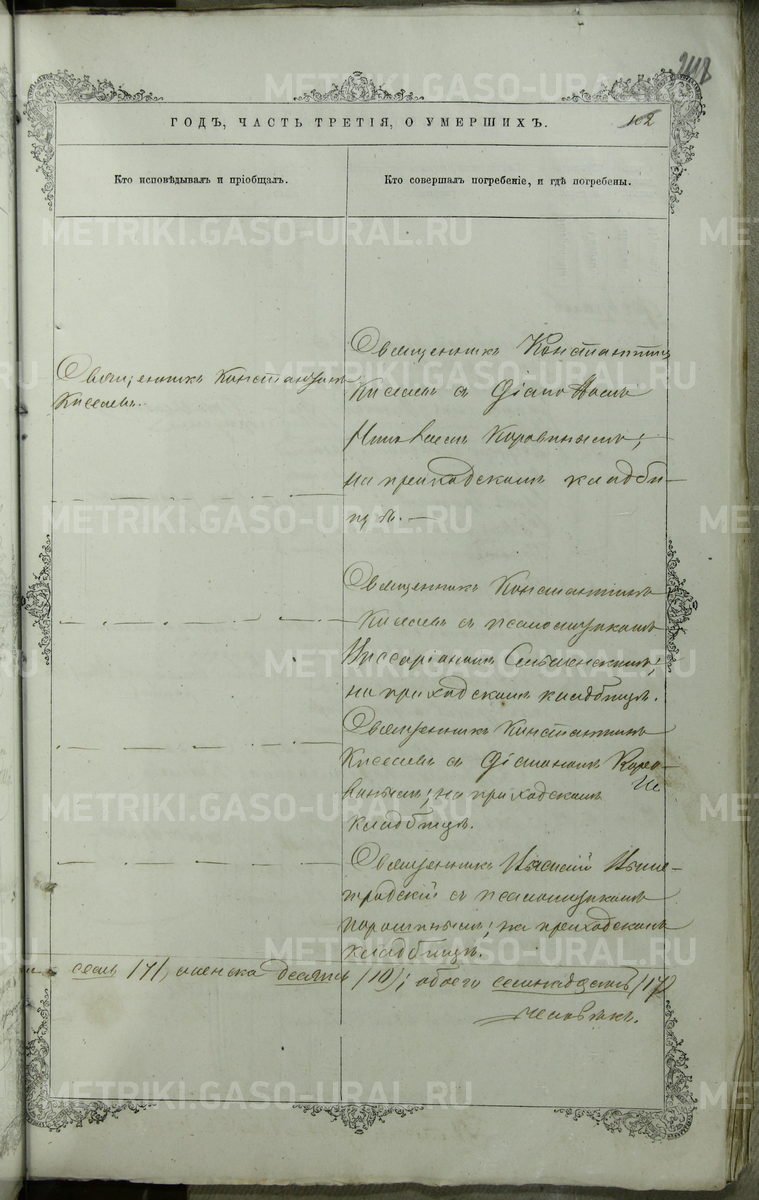 ГОДЪ, ЧАСТЬ ТРЕТІЯ, О УМЕРШИХЪ.
102
Кто исповѣдывалъ и пріобщалъ.
Кто совершалъ погребеніе, и гдѣ погребены.
Священникъ Константинъ
Киселевъ.
Священникъ Константинъ
Киселевъ съ Діакономъ
Коровинымъ;
на приходскомъ кладби-
щѣ.
Священникъ Константинъ
Киселевъ съ псаломщикомъ
на приходскомъ кладбищѣ.
Священникъ Константинъ
Киселевъ съ Діакономъ Коро-
винымъ; на приходскомъ
кладбищѣ.
Священникъ
съ псаломщикомъ
на приходскомъ
кладбищѣ.
семь /7/, женска десять /10/; обоего семнадцать /17/
человѣкъ.
METRIKI.GASO-URAL.RU